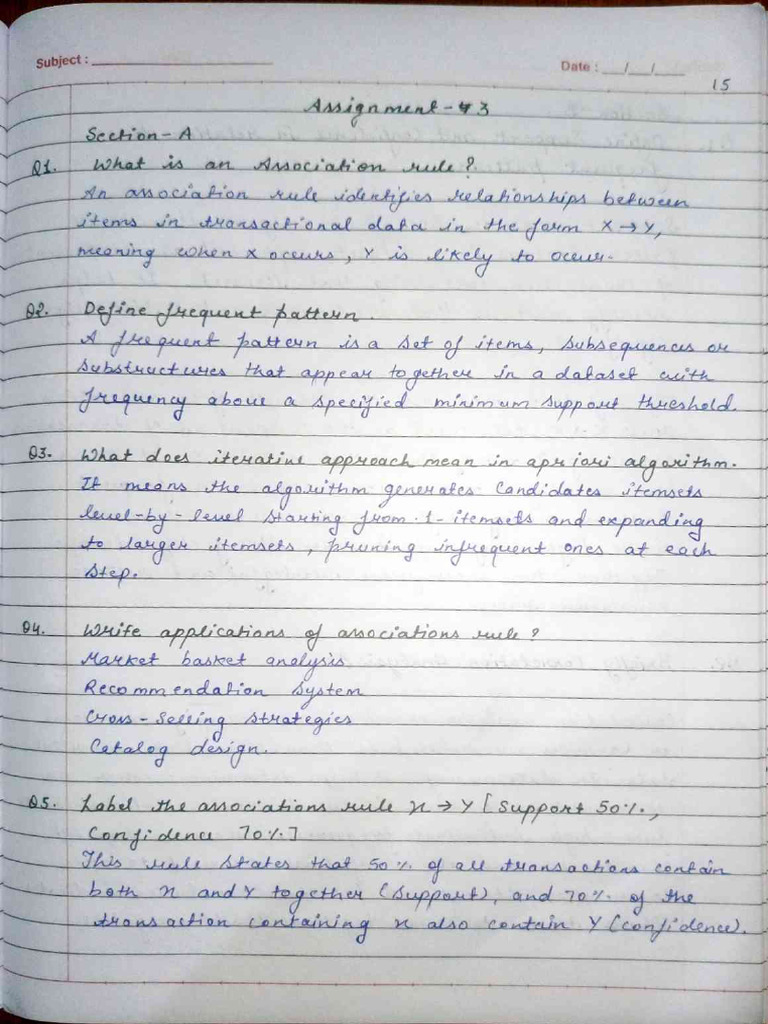 Subject : Date : __/__/__
15
Assignment - 3
Section - A
Q1. What is an Association rule?
An association rule identifies relationships between
items in transactional data in the form X → Y,
meaning when X occurs, Y is likely to occur.
Q2. Define frequent pattern.
A frequent pattern is a set of items, subsequences or
substructures that appear together in a dataset with
frequency above a specified minimum support threshold.
Q3. What does iterative approach mean in apriori algorithm.
It means the algorithm generates candidates itemsets
level-by-level starting from 1-itemsets and expanding
to larger itemsets, pruning infrequent ones at each
step.
Q4. Write applications of associations rule?
Market basket analysis
Recommendation system
Cross-selling strategies
Catalog design.
Q5. Label the associations rule x → Y [Support 50%,
Confidence 70%]
This rule states that 50% of all transactions contain
both x and Y together (Support), and 70% of the
transaction containing x also contain Y (confidence).